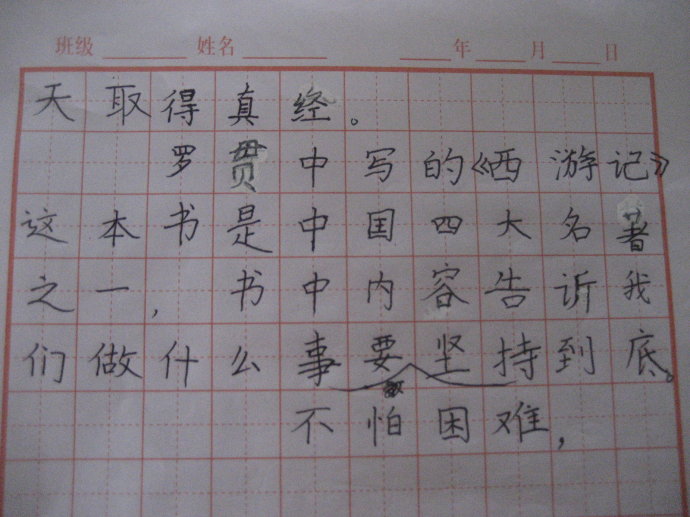 班级 姓名 年 月 日
天取得真经。
罗贯中写的《西游记》
这本书是中国四大名著
之一，书中内容告诉我
们做什么事要坚持到底。
不怕困难，